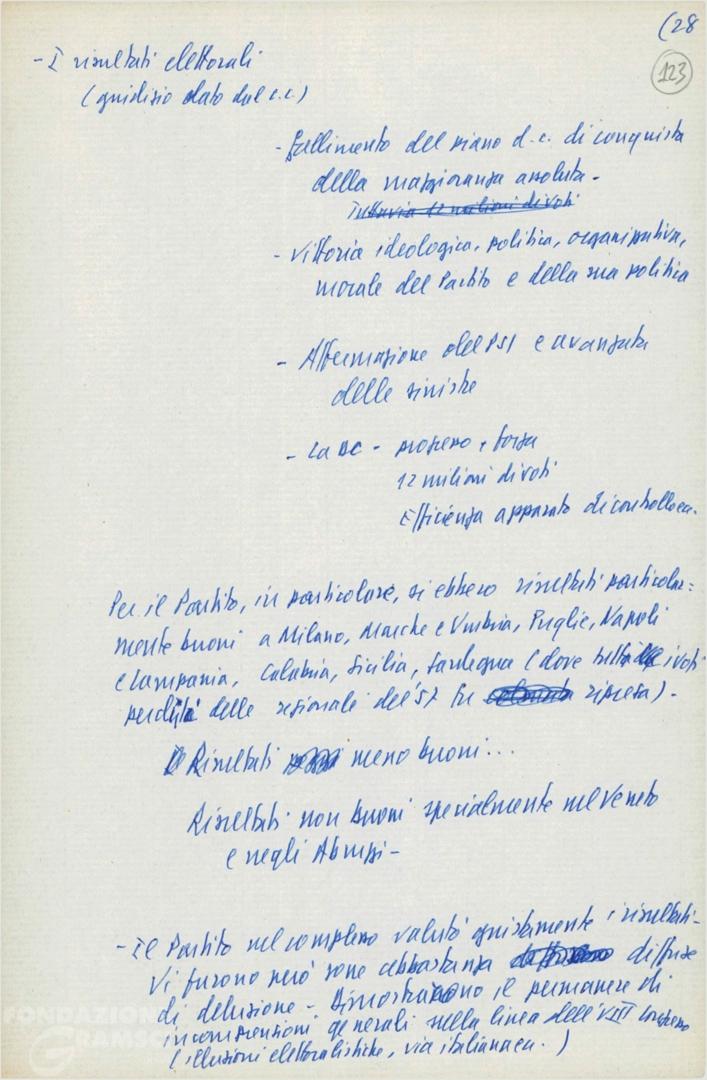 (28
123
- I risultati elettorali
(giudizio dato dal c.c.)
- fallimento del piano d.c. di conquista
della maggioranza assoluta -
Tuttavia 12 milioni di voti
- Vittoria ideologica, politica, organizzativa,
morale del Partito e della sua politica
- Affermazione del PSI e avanzata
delle sinistre
- La DC -
12 milioni di voti
Efficienza apparato di controllo ecc.
Per il Partito, in particolare, si ebbero risultati particolar=
mente buoni a Milano, Marche e Umbria, Puglie, Napoli
e Campania, Calabria, Sicilia, Sardegna (dove i voti
delle regionali del '57 fu ripresa) -
Risultati meno buoni...
Risultati non buoni specialmente nel Veneto
e negli Abruzzi -
- Il Partito nel complesso valutò giustamente i risultati -
Vi furono però zone abbastanza diffuse
di delusione - Dimostrarono il permanere di
incomprensioni generali sulla linea dell'VIII Congresso
(illusioni elettoralistiche, via italiana ecc.)
FONDAZIONE
GRAMSCI